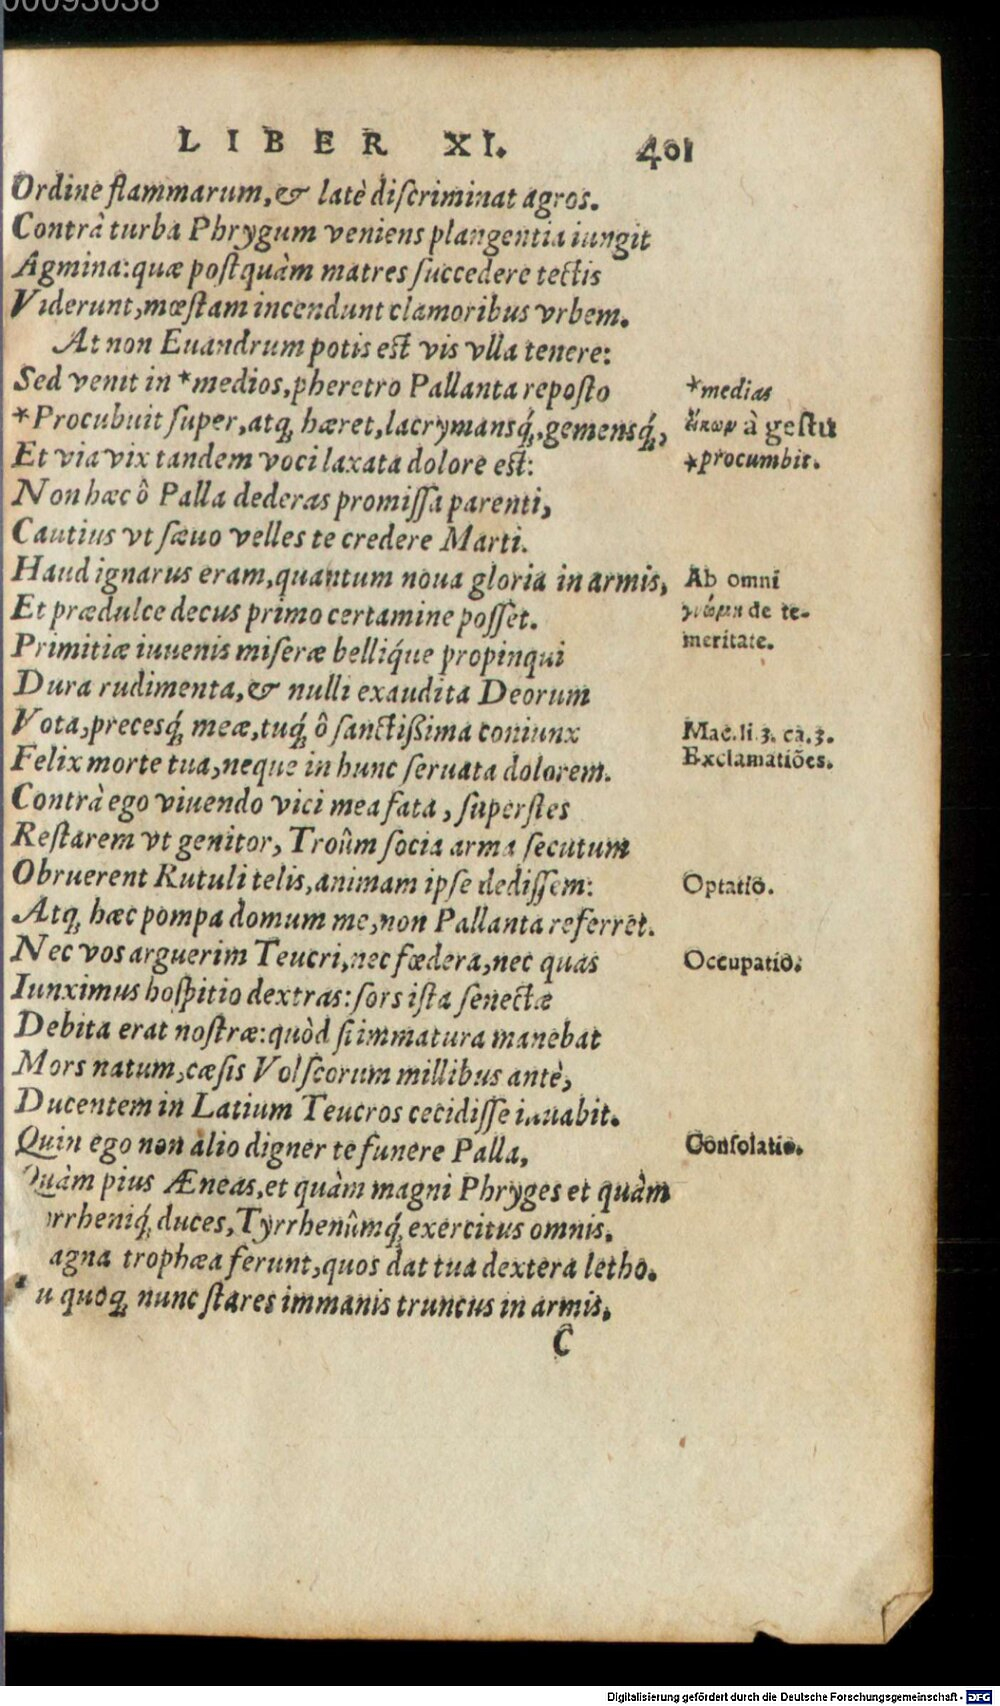 00093038
LIBER XI. 401
Ordine flammarum, & latè discriminat agros.
Contrà turba Phrygum veniens plangentia iungit
Agmina: quæ postquàm matres succedere tectis
Viderunt, mœstam incendunt clamoribus vrbem.
At non Euandrum potis est vis vlla tenere:
Sed venit in *medios, pheretro Pallanta reposto
*medias
*Procubuit super, atq; hæret, lacrymansq́;, gemensq́;,
εἰκων à gestu
Et via vix tandem voci laxata dolore est:
*procumbit.
Non hæc ô Palla dederas promissa parenti,
Cautius vt sæuo velles te credere Marti.
Haud ignarus eram, quantum noua gloria in armis,
Ab omni
Et prædulce decus primo certamine posset.
γνώμη de te-
Primitiæ iuuenis miseræ belliq́ue propinqui
meritate.
Dura rudimenta, & nulli exaudita Deorum
Vota, precesq́; meæ, tuq́; ô sanctißima coniunx
Mac. li. 3. ca. 3.
Felix morte tua, neque in hunc seruata dolorem.
Exclamatiões.
Contrà ego viuendo vici mea fata, superstes
Restarem vt genitor, Troûm socia arma secutum
Obruerent Rutuli telis, animam ipse dedissem:
Optatio.
Atq; hæc pompa domum me, non Pallanta referret.
Nec vos arguerim Teucri, nec fœdera, nec quas
Occupatio.
Iunximus hospitio dextras: sors ista senectæ
Debita erat nostræ: quòd si immatura manebat
Mors natum, cæsis Volscorum millibus antè,
Ducentem in Latium Teucros cecidisse iuuabit.
Quin ego non alio digner te funere Palla,
Consolatio.
Quàm pius Æneas, et quàm magni Phryges et quàm
rrheniq́; duces, Tyrrhenûmq́; exercitus omnis.
agna trophæa ferunt, quos dat tua dextera letho.
u quoq; nunc stares immanis truncus in armis.
C
Digitalisierung gefördert durch die Deutsche Forschungsgemeinschaft - DFG